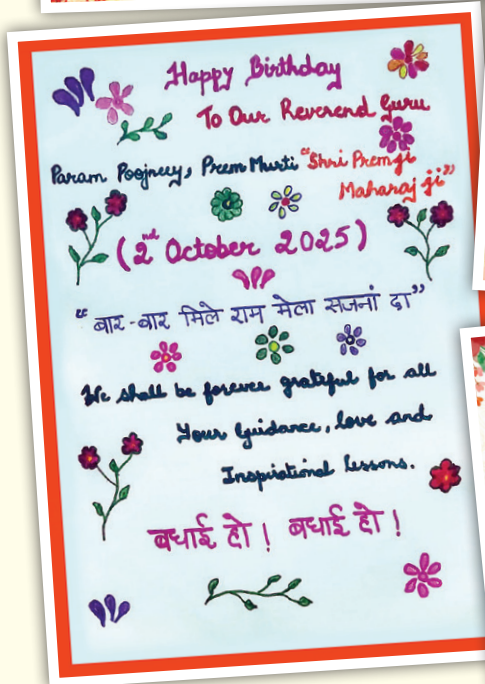 Happy Birthday
To Our Reverend Guru
Param Poojneey, Prem Murti "Shri Premji
Maharaj ji"
(2nd October 2025)
"बार-बार मिले राम मेला सजनां दा"
We shall be forever grateful for all
Your Guidance, love and
Inspirational lessons.
बधाई हो! बधाई हो!